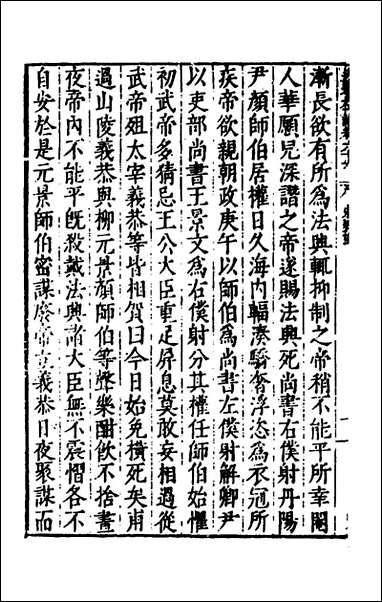 漸長欲有所為法興輒抑制之帝稍不能平所幸閹
人華願兒深譖之帝遂賜法興死尚書右僕射丹陽
尹顏師伯居權日久海內輻湊驕奢淫恣為衣冠所
疾帝欲親朝政庚午以師伯為尚書左僕射解卿尹
以吏部尚書王景文為右僕射分其權任師伯始懼
初武帝多猜忌王公大臣重足屏息莫敢妄相過從
武帝殂太宰義恭等皆相賀曰今日始免橫死矣甫
過山陵義恭與柳元景顏師伯等聲樂酣飲不捨晝
夜帝內不能平旣殺戴法興諸大臣無不震慴各不
自安於是元景師伯密謀廢帝立義恭日夜聚謀而